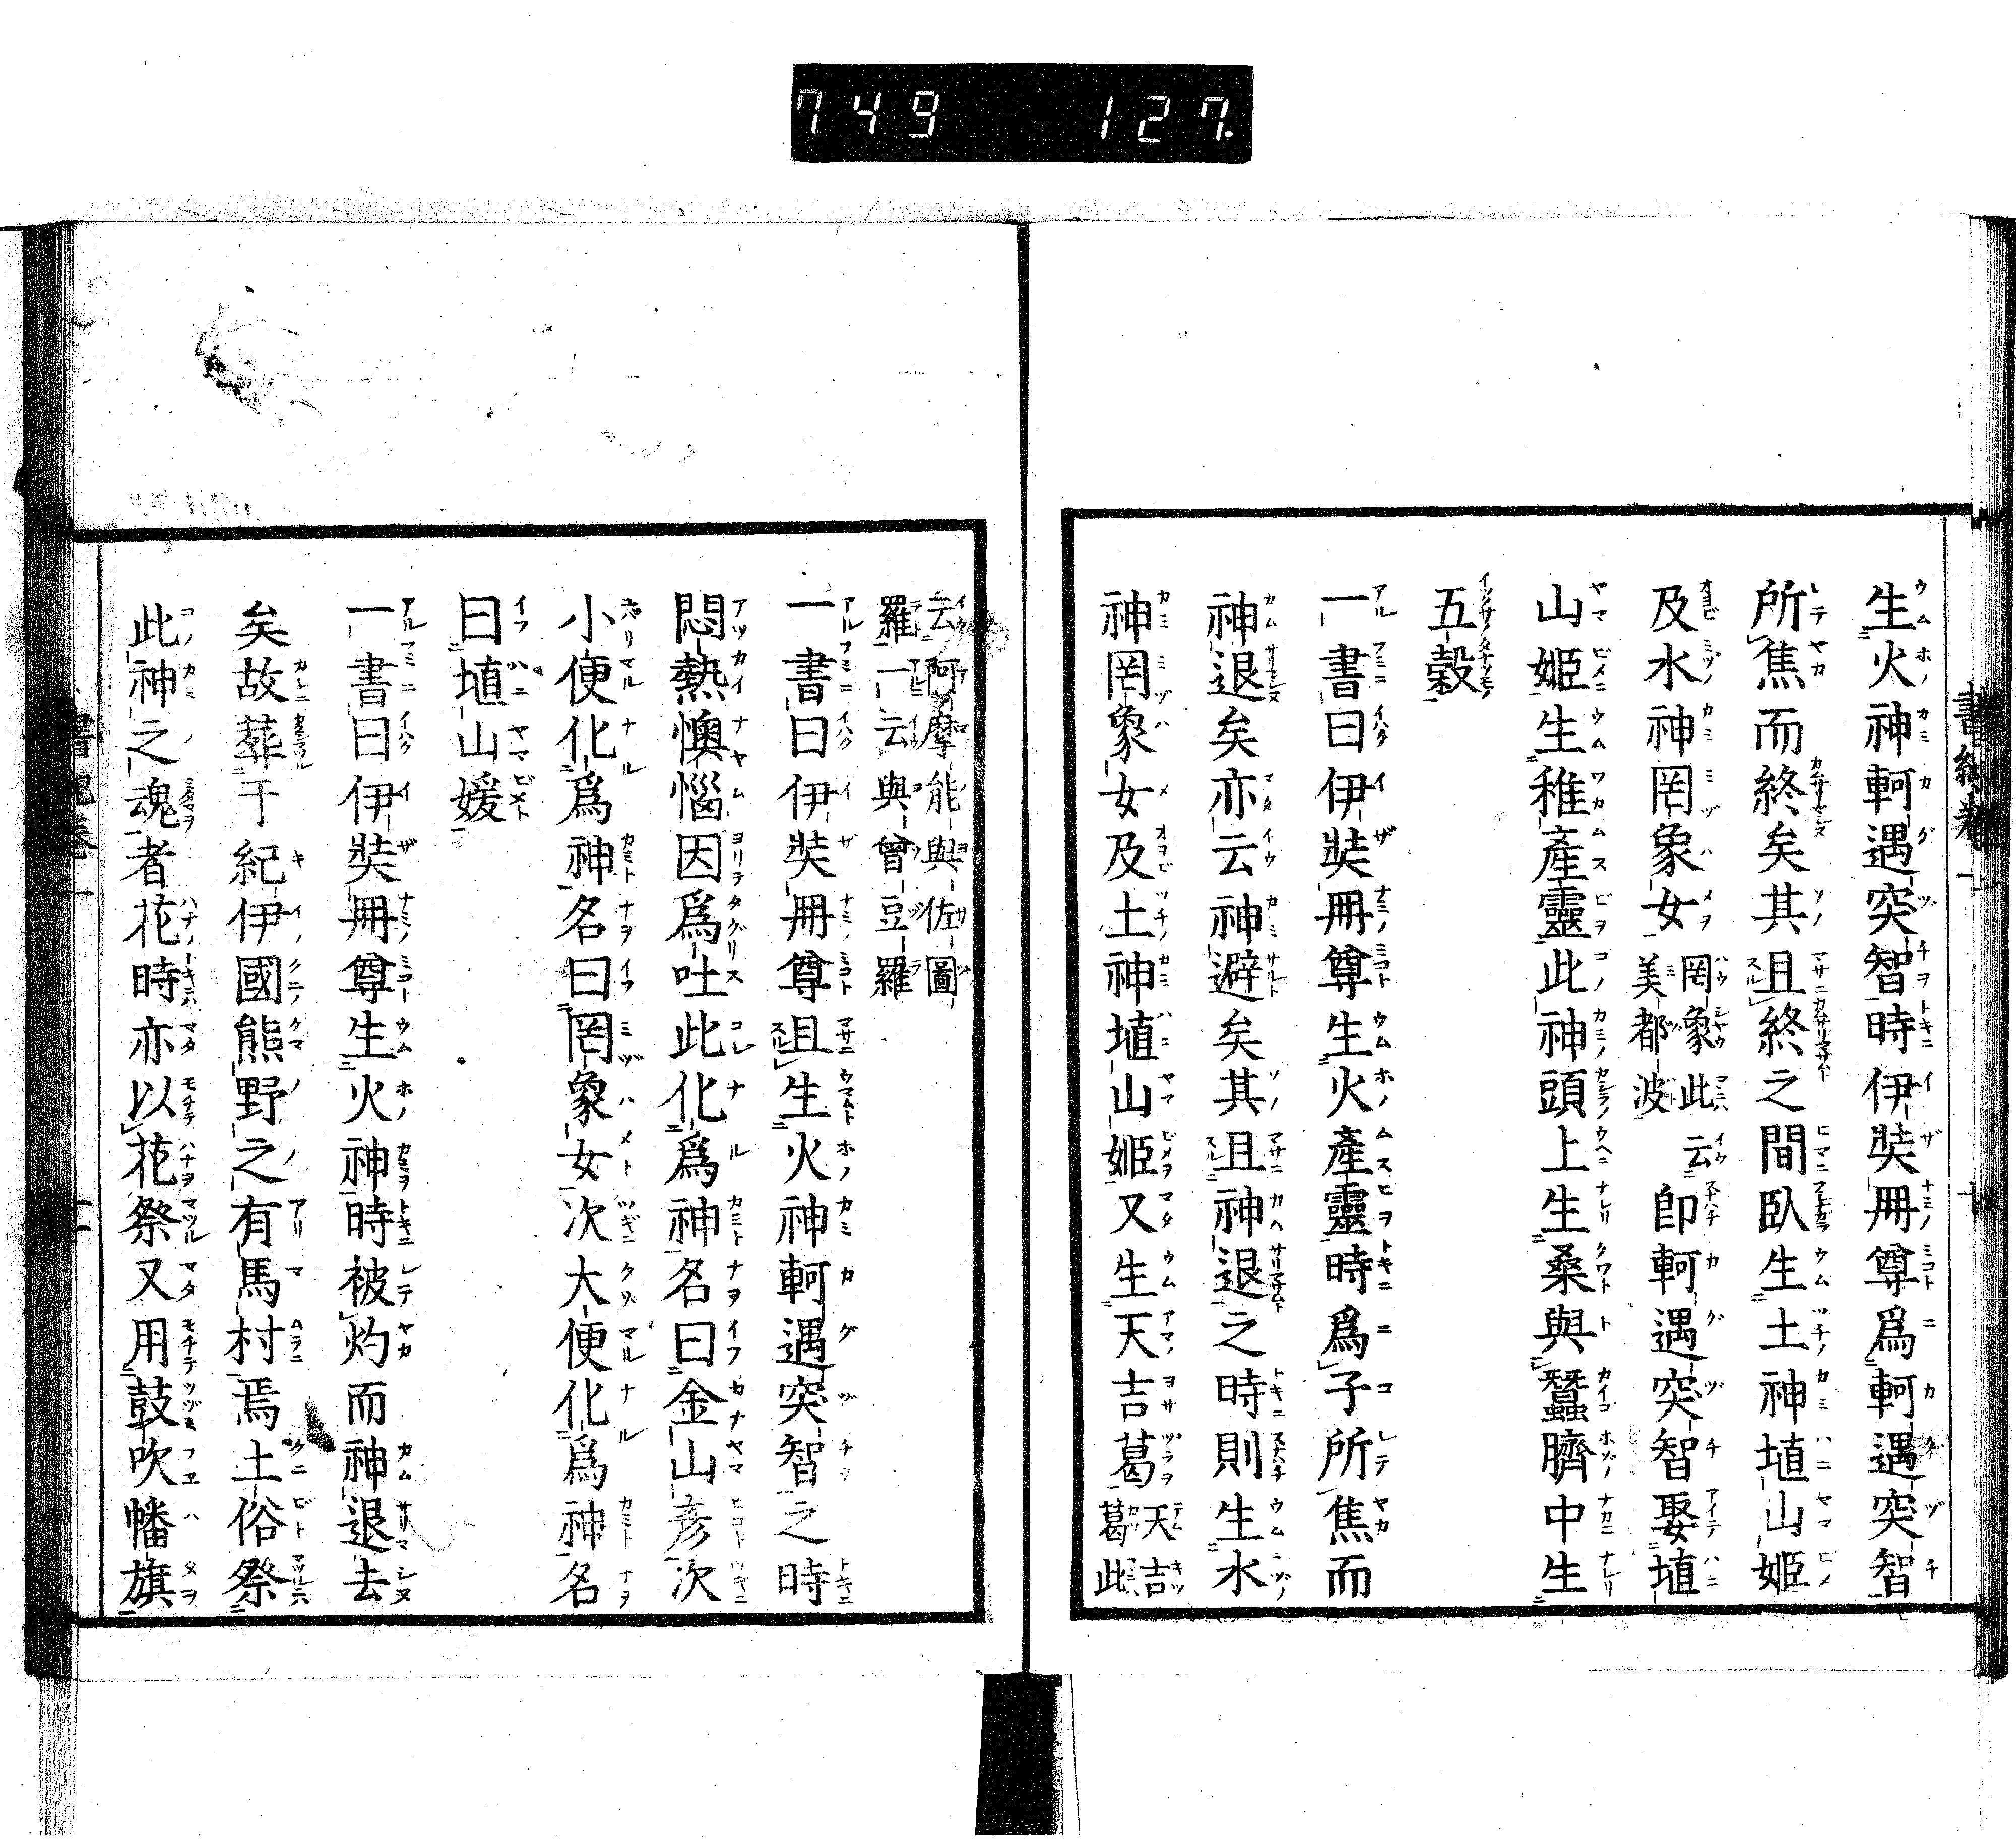 749 127.
生火神軻遇突智時伊弉冊尊爲軻遇突智
所焦而終矣其且終之間臥生土神埴山姬
及水神罔象女罔象此云美都波卽軻遇突智娶埴
山姬生稚產靈此神頭上生桑與蠶臍中生
五穀
一書曰伊弉冊尊生火產靈時爲子所焦而
神退矣亦云神避矣其且神退之時則生水
神罔象女及土神埴山姬又生天吉葛天吉葛此
云阿摩能與佐圖羅一云與曾豆羅
一書曰伊弉冊尊且生火神軻遇突智之時
悶熱懊惱因爲吐此化爲神名曰金山彥次
小便化爲神名曰罔象女次大便化爲神名
曰埴山媛
一書曰伊弉冊尊生火神時被灼而神退去
矣故葬于紀伊國熊野之有馬村焉土俗祭
此神之魂者花時亦以花祭又用鼓吹幡旗